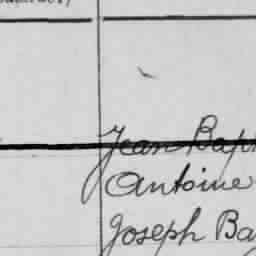 Jean Bap
Antoine
Joseph Ba